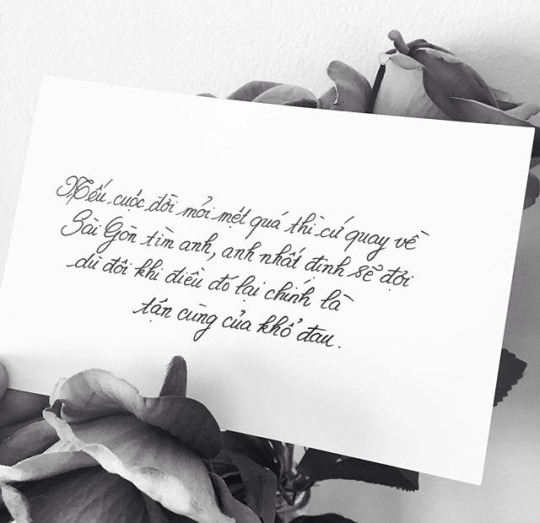 Nếu cuộc đời mỏi mệt quá thì cứ quay về
Sài Gòn tìm anh, anh nhất định sẽ đợi
dù đôi khi điều đó lại chính là
tận cùng của khổ đau.